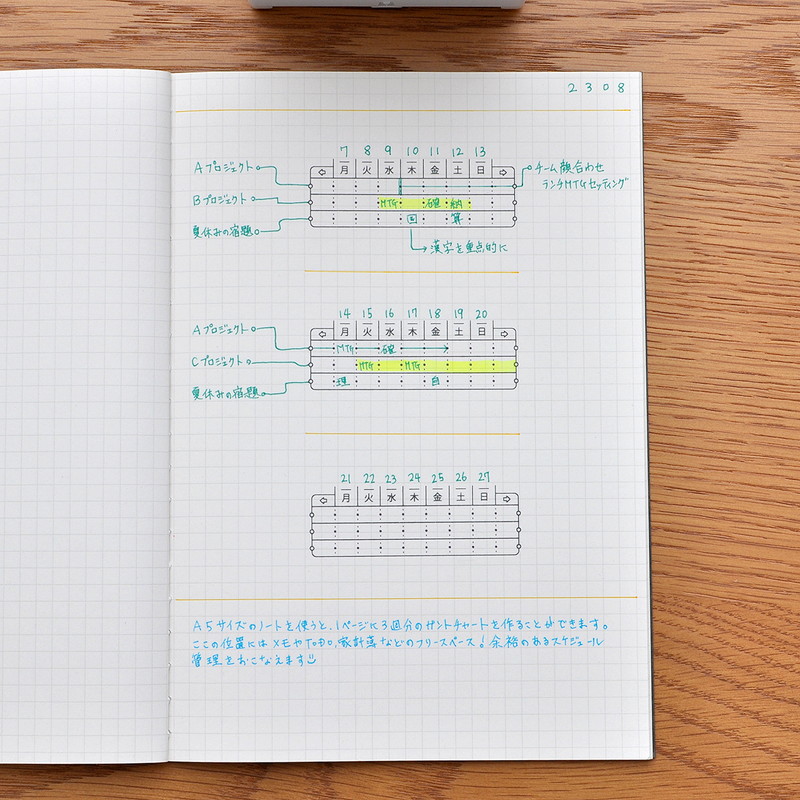 2308
7 8 9 10 11 12 13
月 火 水 木 金 土 日
Aプロジェクト
チーム顔合わせ
ランチMTGセッティング
Bプロジェクト
MTG 確 納
夏休みの宿題
国 算
漢字を重点的に
14 15 16 17 18 19 20
月 火 水 木 金 土 日
Aプロジェクト
MTG 確
Cプロジェクト
MTG MTG
夏休みの宿題
理 自
21 22 23 24 25 26 27
月 火 水 木 金 土 日
A5サイズのノートを使うと、1ページに3週分のガントチャートを作ることができます。
ここの位置にはメモやToDo,家計簿などのフリースペース!余裕のあるスケジュール
管理をおこなえます